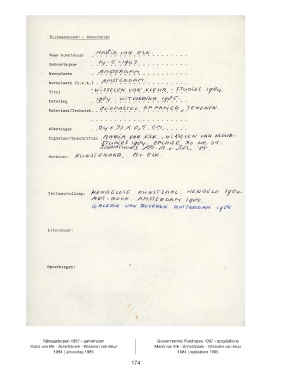 Rijksaankopen - Aanwinsten
Naam kunstenaar MARIA VAN ELK
Geboortejaar 14-5-1943
Woonplaats AMSTERDAM
Werkplaats AMSTERDAM
Titel WISSELEN VAN KLEUR - STUDIES 1984
Datering 1984 UITVOERING 1985
Materiaal/Techniek OLIEPASTEL OP PAPIER, TEKENEN
Afmetingen
Signatuur/Opschriften MARIA VAN ELK. WISSELEN VAN KLEUR
STUDIES 1984. OPLAGE 30 NR. 25.
Herkomst KUNSTENAAR, M v ELK.
Tentoonstelling: HENGELOSE KUNSTZAAL. HENGELO 1984.
ART-BOOK AMSTERDAM 1985.
GALERIE VAN BEVEREN ROTTERDAM 1985
Literatuur:
Opmerkingen:
Rijksaankopen 1987 - aanwinsten
Maria van Elk - Schetsboek - Wisselen van kleur
Governmental Purchases 1987 - acquisitions
Maria van Elk - Schetsboek - Wisselen van kleur
174